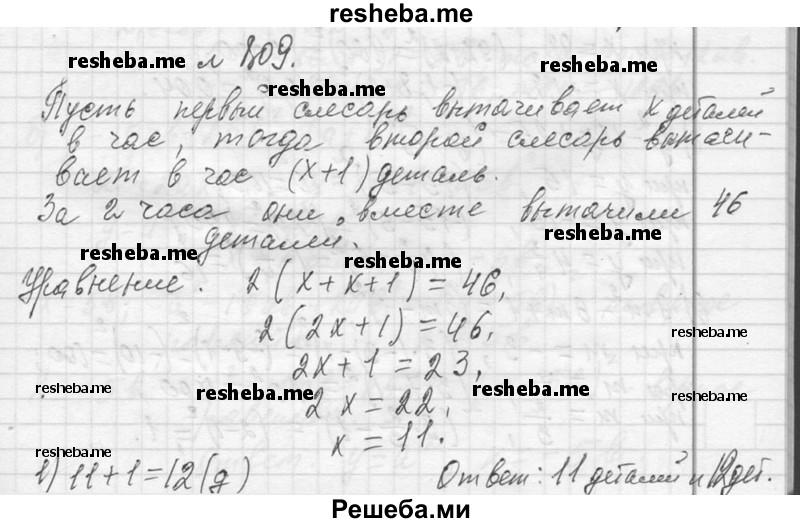 resheba.me
resheba.me № 809. resheba.me
resheba.me
Пусть первый слесарь вытачивает x деталей
в час, тогда второй слесарь вытачи-
вает в час (x+1) деталь.
За 2 часа они вместе выточили 46
деталей. resheba.me
resheba.me resheba.me
Уравнение. 2(x+x+1)=46,
2(2x+1)=46,
resheba.me
2x+1=23,
resheba.me resheba.me resheba.me resheba.me
2x=22,
x=11.
resheba.me resheba.me resheba.me
1) 11+1=12(д) Ответ: 11 деталей и 12 дет.
Решеба.ми